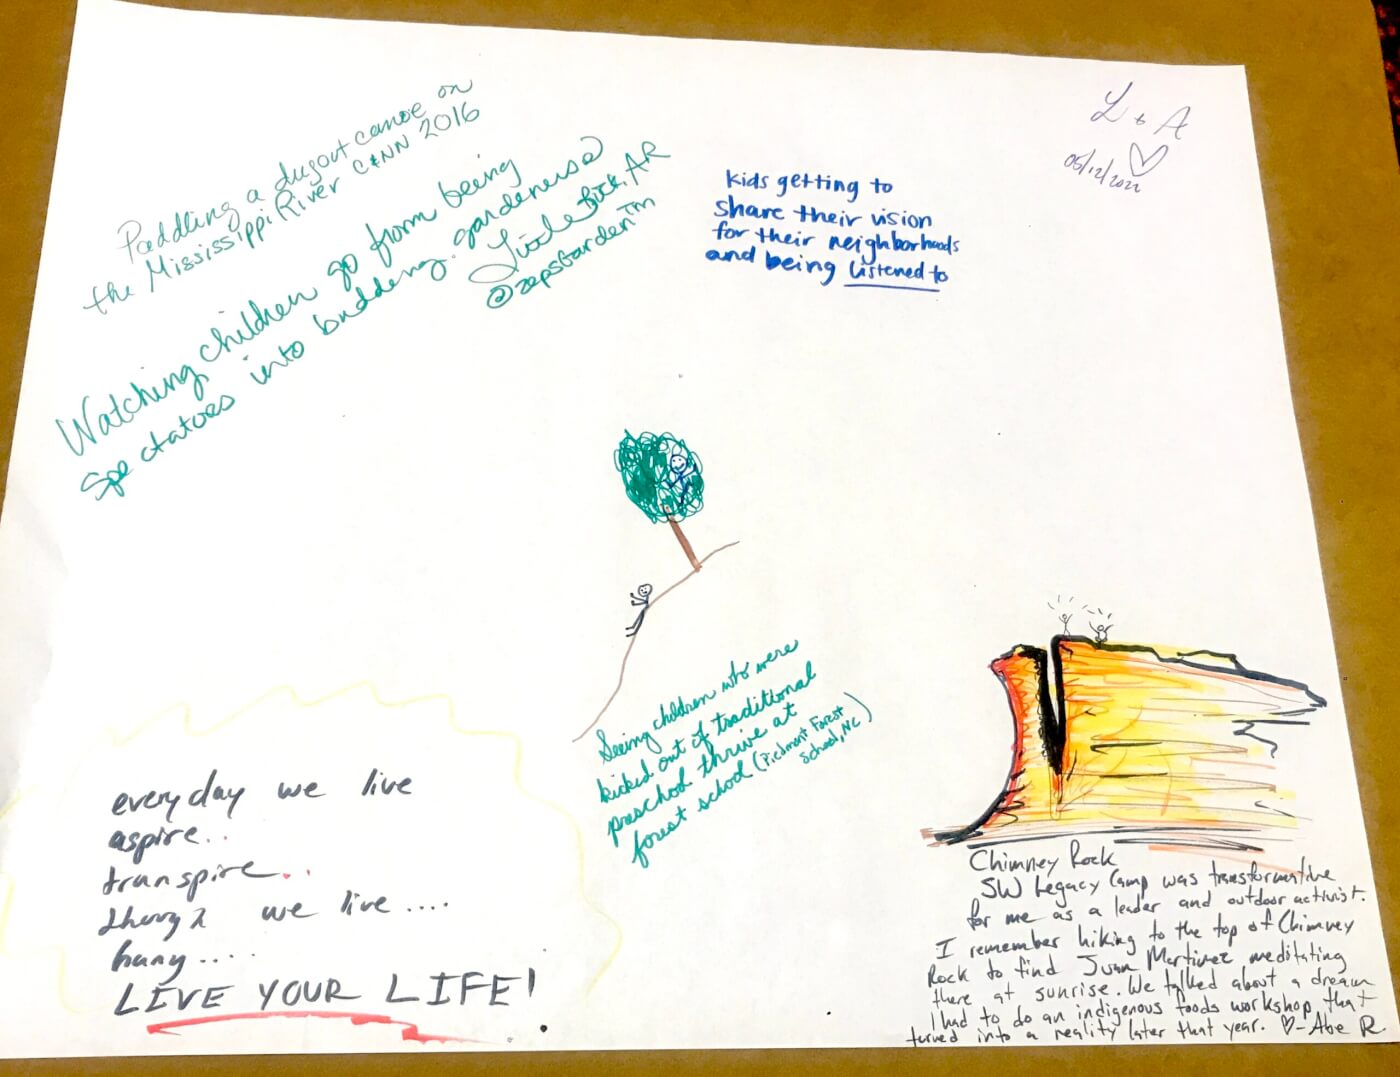 Paddling a dugout canoe on
the Mississippi River C&NN 2016
Watching children go from being
spectators into budding gardeners @
Little Rock, AR
@zepsGarden™
kids getting to
share their vision
for their neighborhoods
and being listened to
L & A
05/12/2022
Seeing children who were
kicked out of traditional
preschool thrive at
forest school (Piedmont Forest
School, NC)
everyday we live
aspire..
transpire..
we live ....
LIVE YOUR LIFE!
Chimney Rock
SW Legacy Camp was transformative
for me as a leader and outdoor activist.
I remember hiking to the top of Chimney
Rock to find Juan Martinez meditating
there at sunrise. We talked about a dream
I had to do an indigenous foods workshop that
turned into a reality later that year. ♡ - Abe R.